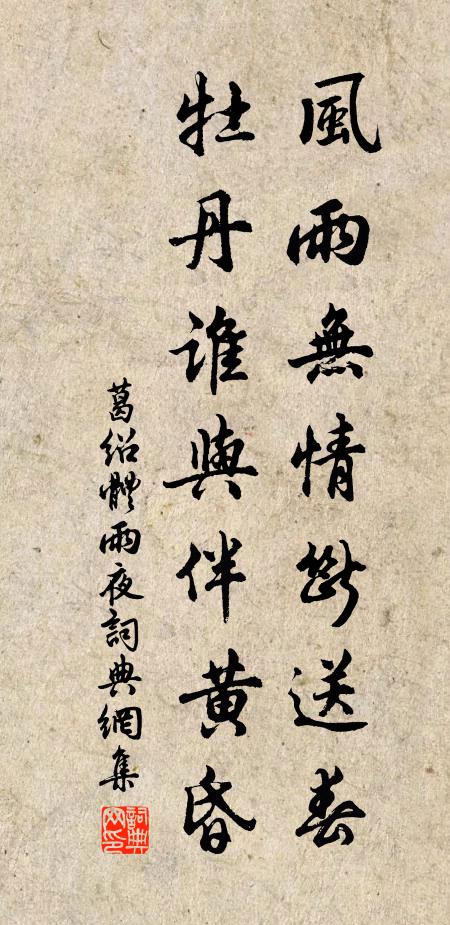 風雨無情斷送春
牡丹誰與伴黃昏
葛紹體雨夜詞典網集
詞典網印